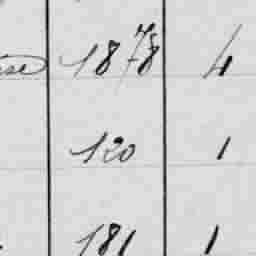 1878 4
120 1
181 1